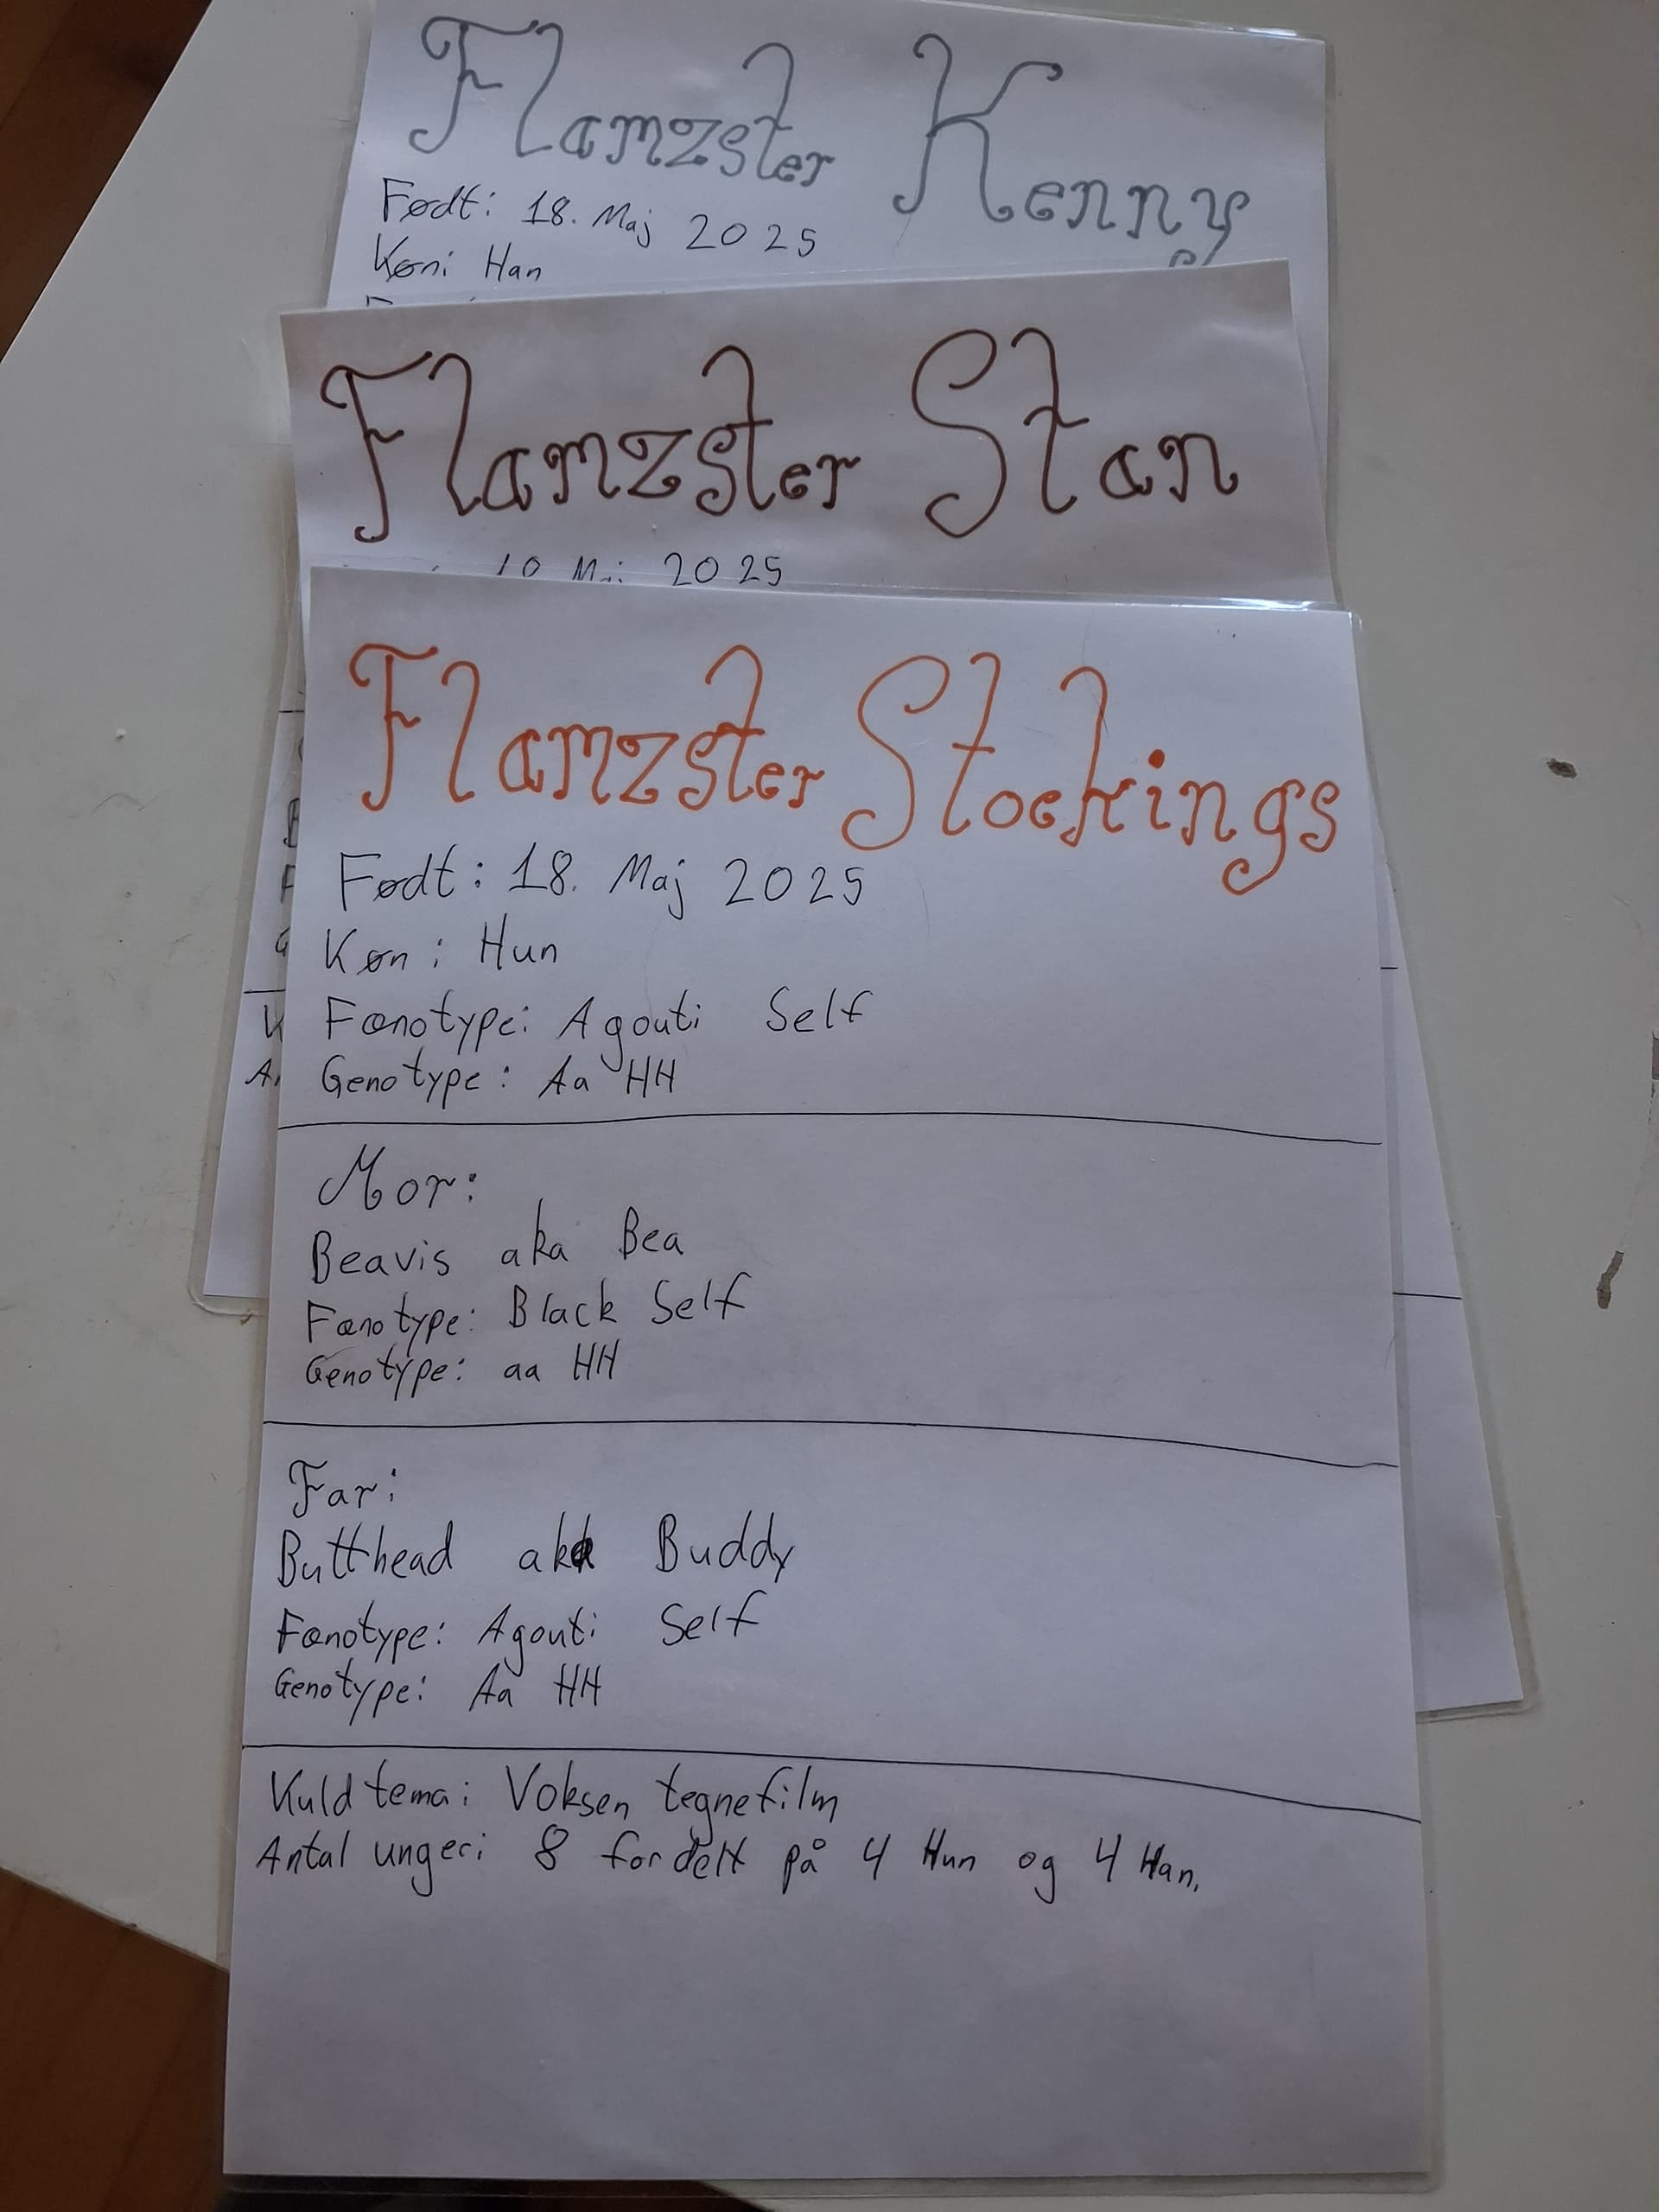 Flamzster Kenny
Født: 18. Maj 2025
Køn: Han
Flamzster Stan
2025
Flamzster Stockings
Født: 18. Maj 2025
Køn: Hun
Fænotype: Agouti Self
Genotype: Aa HH
Mor:
Beavis aka Bea
Fænotype: Black Self
Genotype: aa HH
Far:
Butthead aka Buddy
Fænotype: Agouti Self
Genotype: Aa HH
Kuld tema: Voksen tegnefilm
Antal unger: 8 fordelt på 4 Hun og 4 Han.